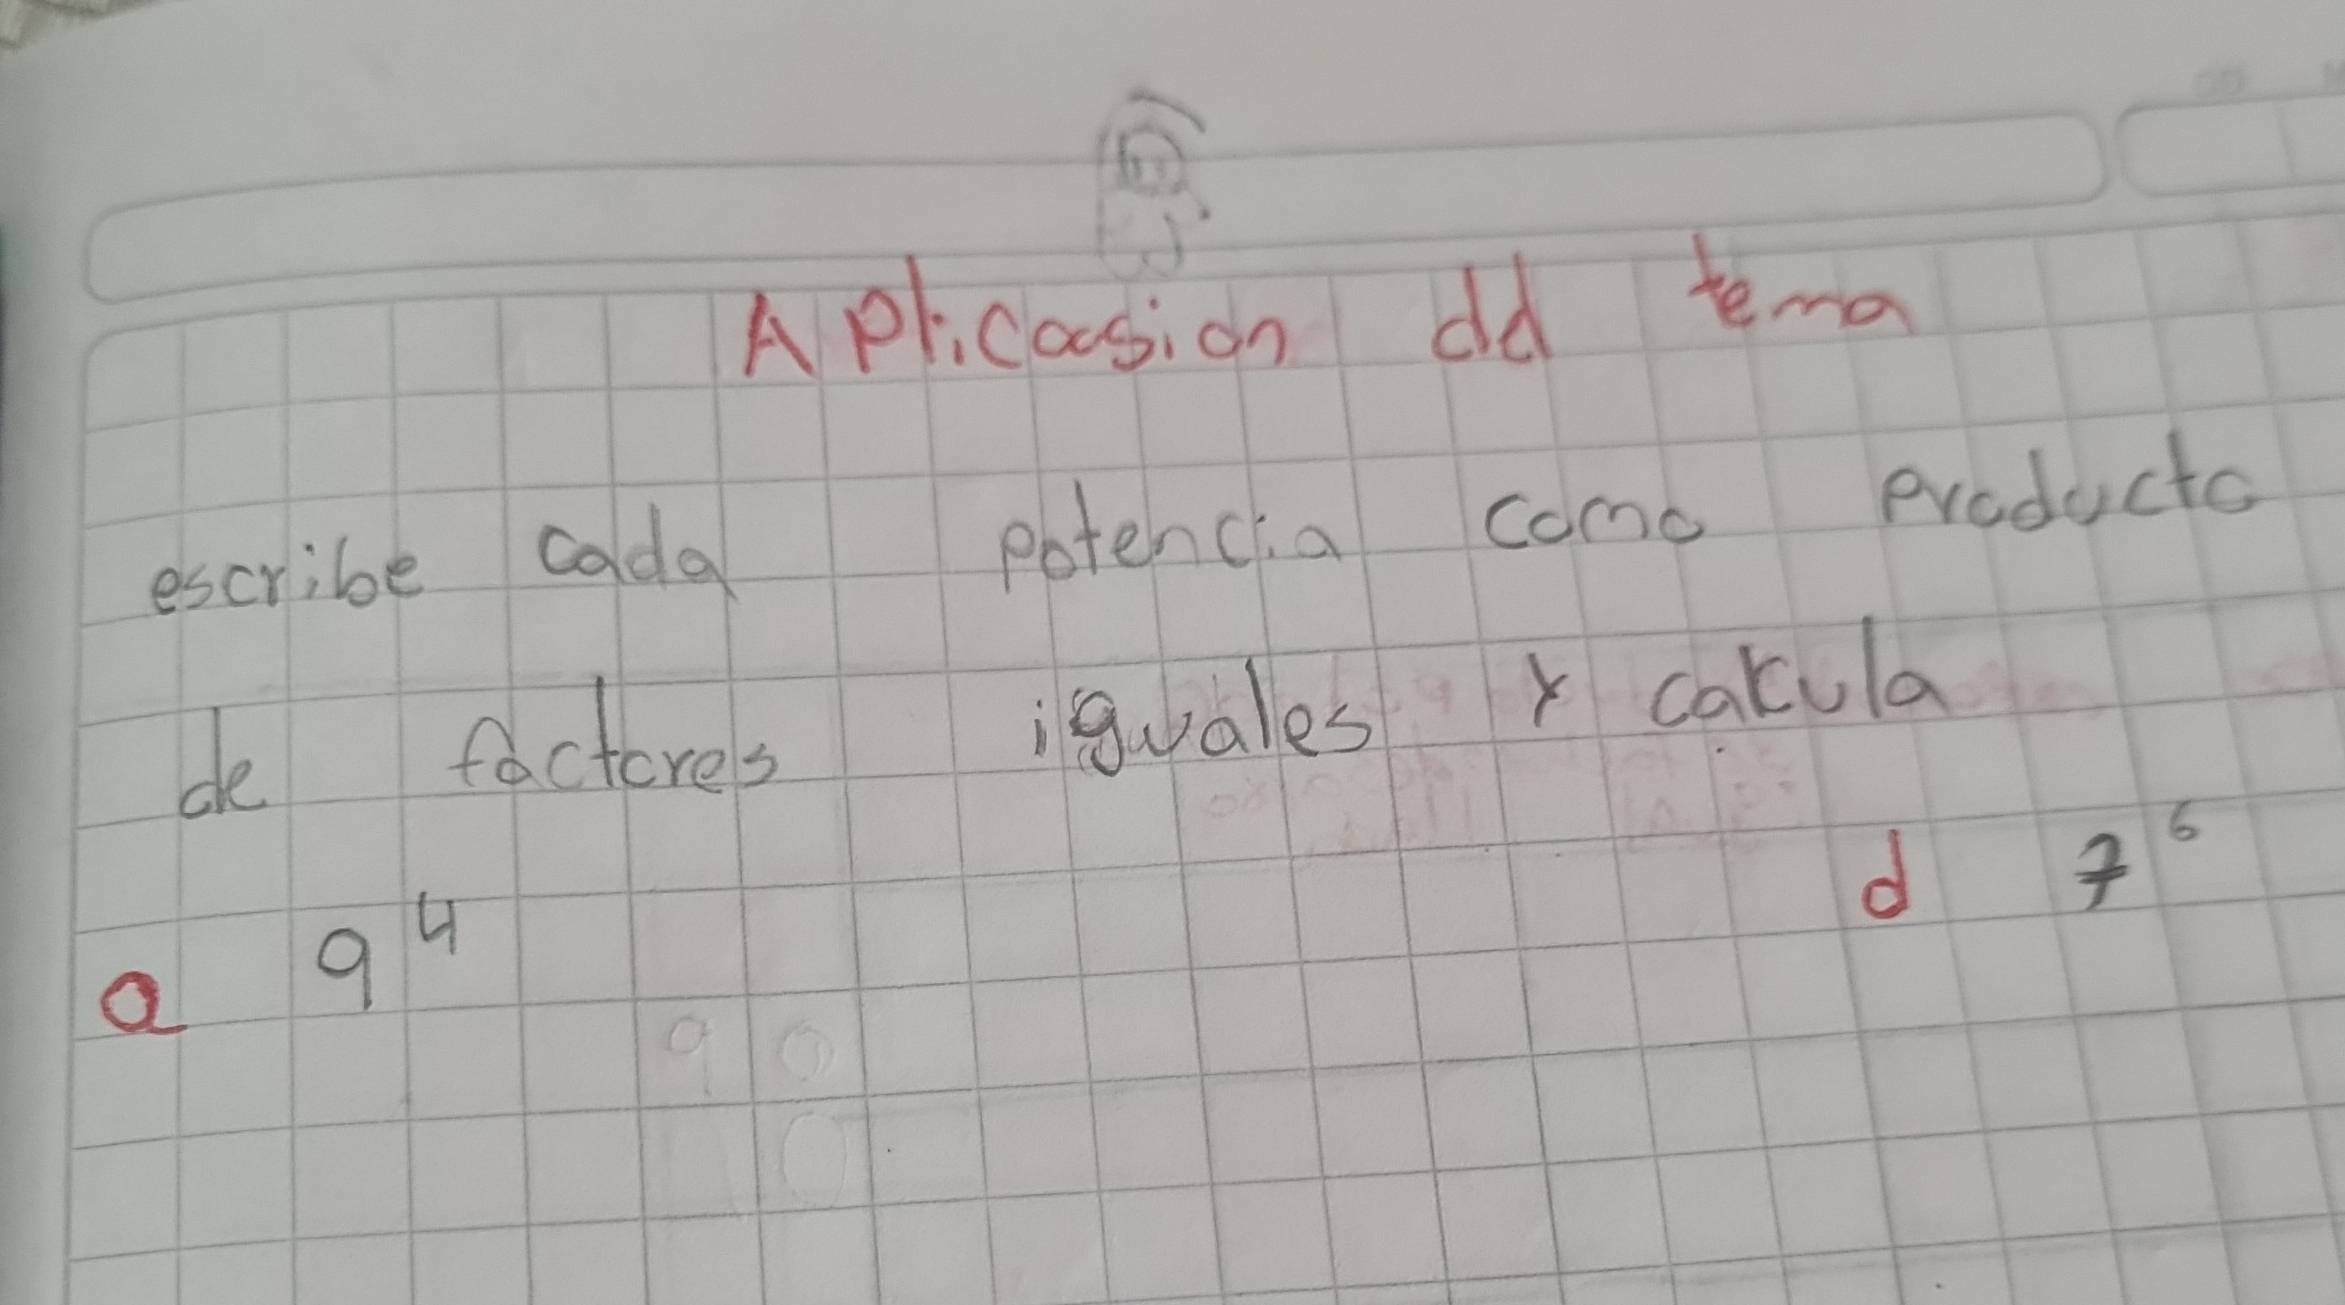 Aplicasion del tema
escribe cada potencia como producto
de factores iguales y calcula
a 9⁴ d 7⁶